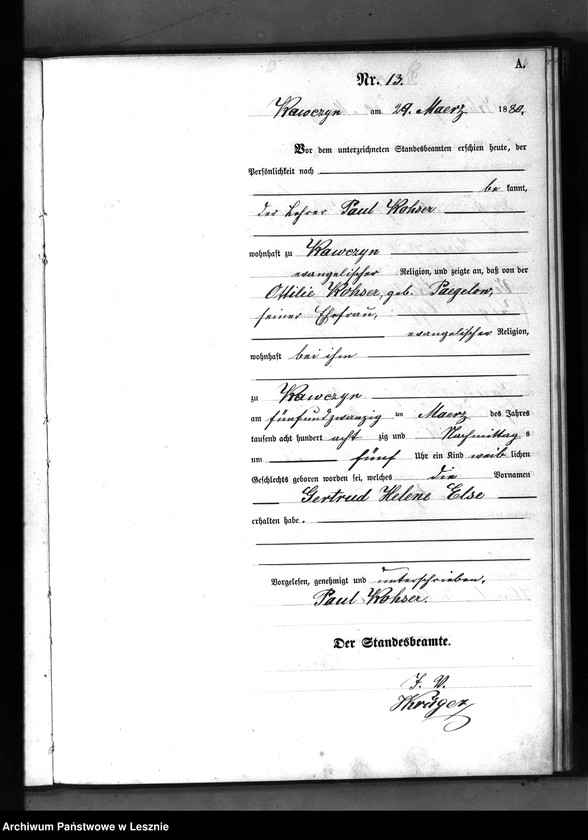 A.
Nr. 13.
Kawczyn am 29. Maerz 1880.
Vor dem unterzeichneten Standesbeamten erschien heute, der
Persönlichkeit nach
be kannt,
der Lehrer Paul Kohser
wohnhaft zu Kawczyn
evangelischer Religion, und zeigte an, daß von der
Ottilie Kohser, geb. Paegelow,
seiner Ehefrau,
evangelischer Religion,
wohnhaft bei ihm
zu Kawczyn
am fünfundzwanzig ten Maerz des Jahres
tausend acht hundert acht zig und Nachmittag s
um fünf Uhr ein Kind weib lichen
Geschlechts geboren worden sei, welches die Vornamen
Gertrud Helene Else
erhalten habe.
Vorgelesen, genehmigt und unterschrieben.
Paul Kohser.
Der Standesbeamte.
J. V.
Krüger
Archiwum Państwowe w Lesznie